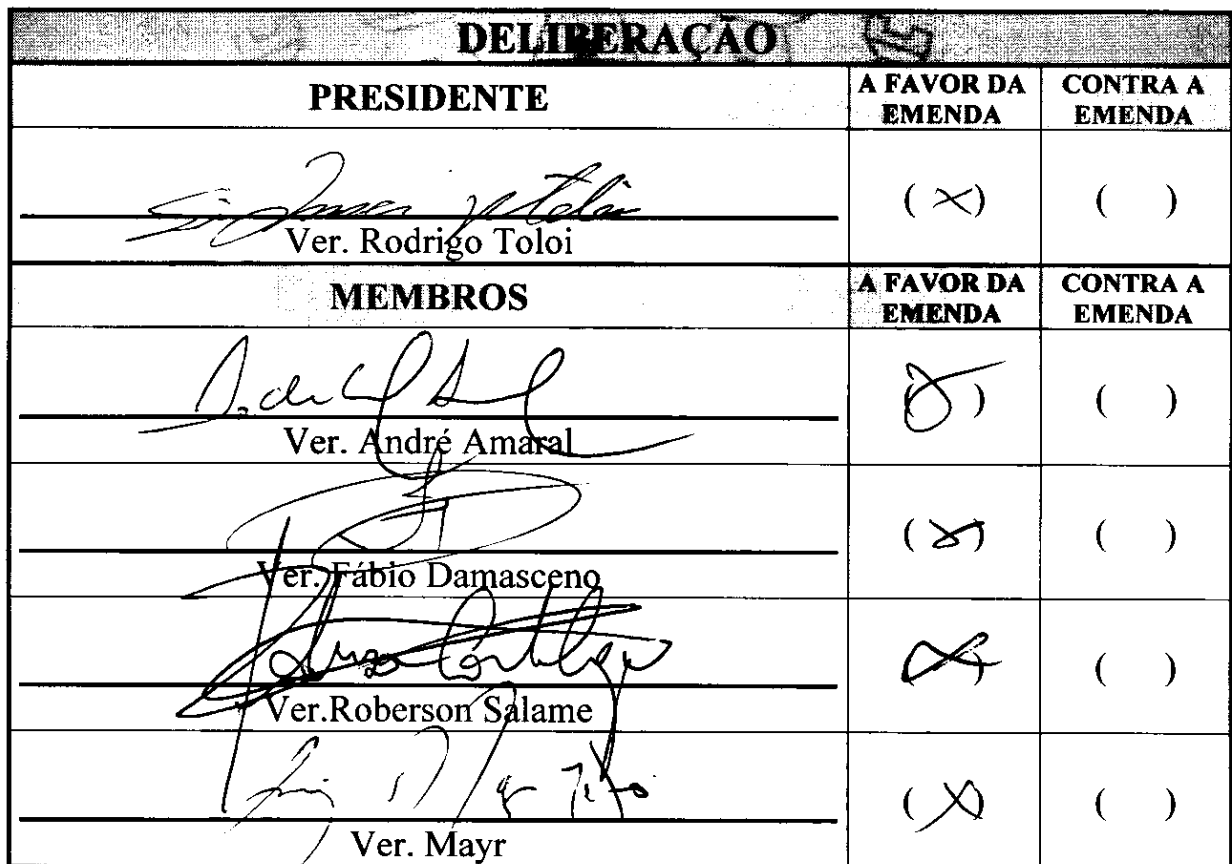 DELIBERAÇÃO
PRESIDENTE
A FAVOR DA EMENDA
CONTRA A EMENDA
Ver. Rodrigo Toloi
( X )
( )
MEMBROS
A FAVOR DA EMENDA
CONTRA A EMENDA
Ver. André Amaral
( X )
( )
Ver. Fábio Damasceno
( X )
( )
Ver.Roberson Salame
( X )
( )
Ver. Mayr
( X )
( )